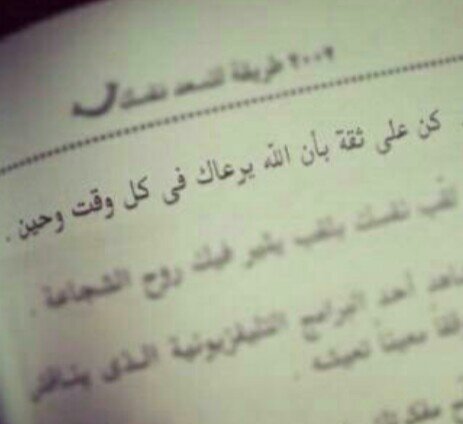 ٢٠٠٢ طريقة لتسعد نفسك
كن على ثقة بأن الله يرعاك فى كل وقت وحين .
لقب نفسك بلقب يثير فيك روح الشجاعة .
أحد البرامج التليفزيونية الذى يناقش
معيناً تعيشه .